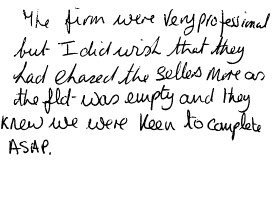 The firm were very professional
but I did wish that they
had chased the sellers more as
the flat was empty and they
knew we were keen to complete
ASAP.